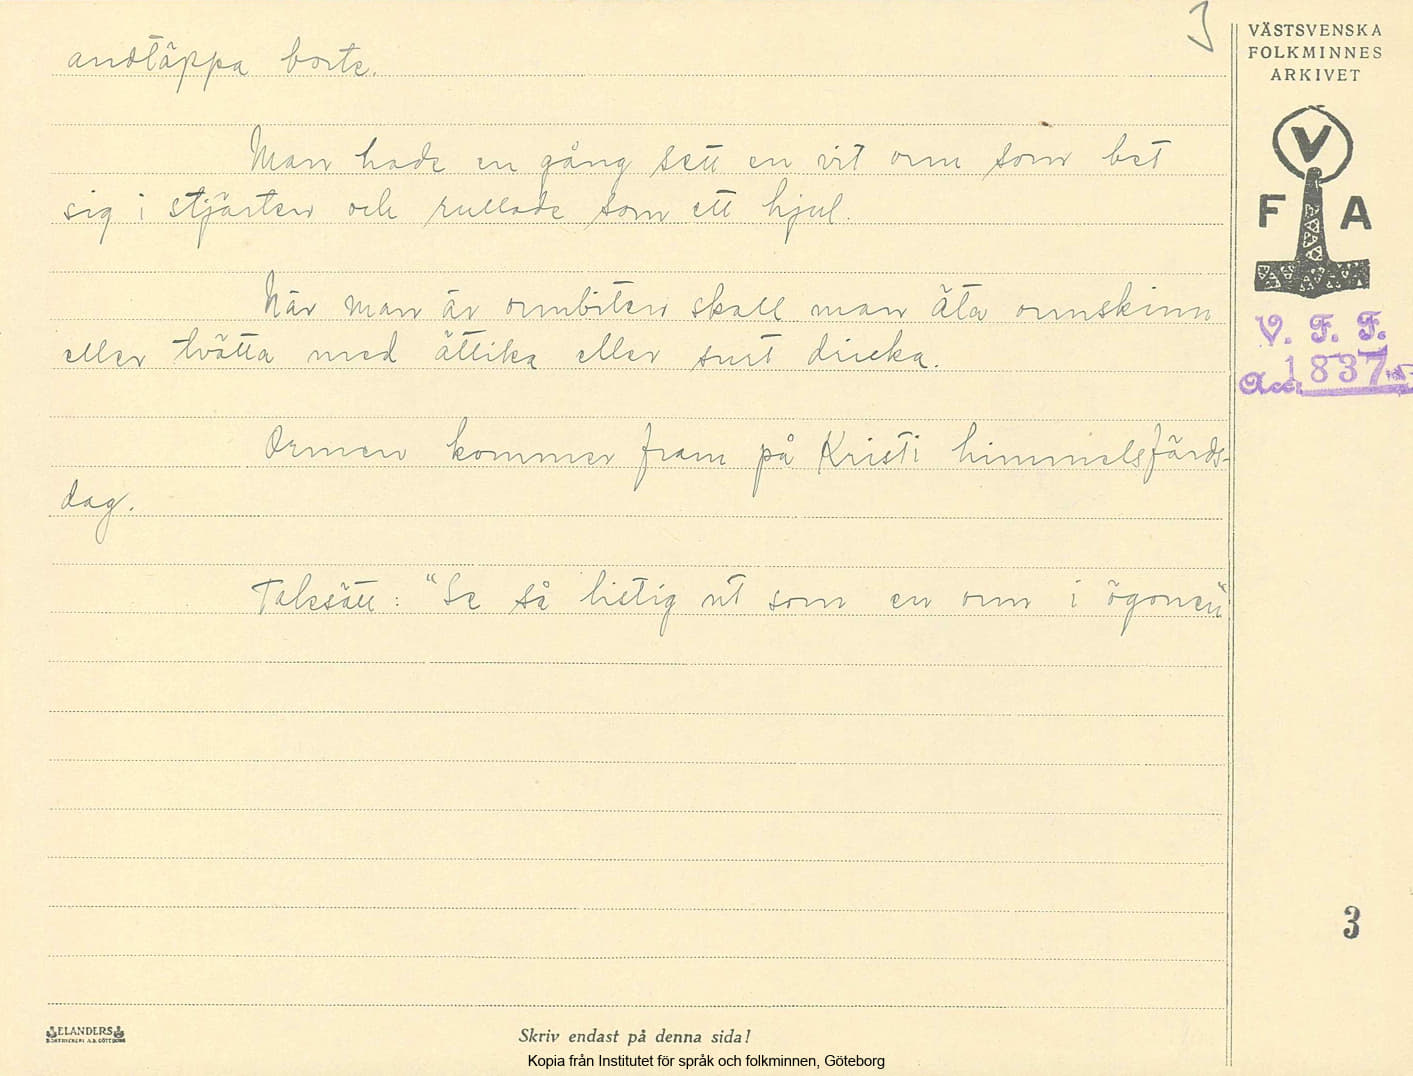 3
andtäppa borte.
Man hade en gång sett en vit orm som bet
sig i stjärten och rullade som ett hjul.
När man är ormbiten skall man äta ormskinn
eller tvätta med ättika eller surt dricka.
Ormen kommer fram på Kristi himmelsfärds-
dag.
Talesätt: "Se så listig ut som en orm i ögonen"
VÄSTSVENSKA
FOLKMINNES
ARKIVET
V
F A
V. F. F.
Acc. 1837
3
ELANDERS
BOKTRYCKERI A.B. GÖTEBORG
Skriv endast på denna sida!
Kopia från Institutet för språk och folkminnen, Göteborg